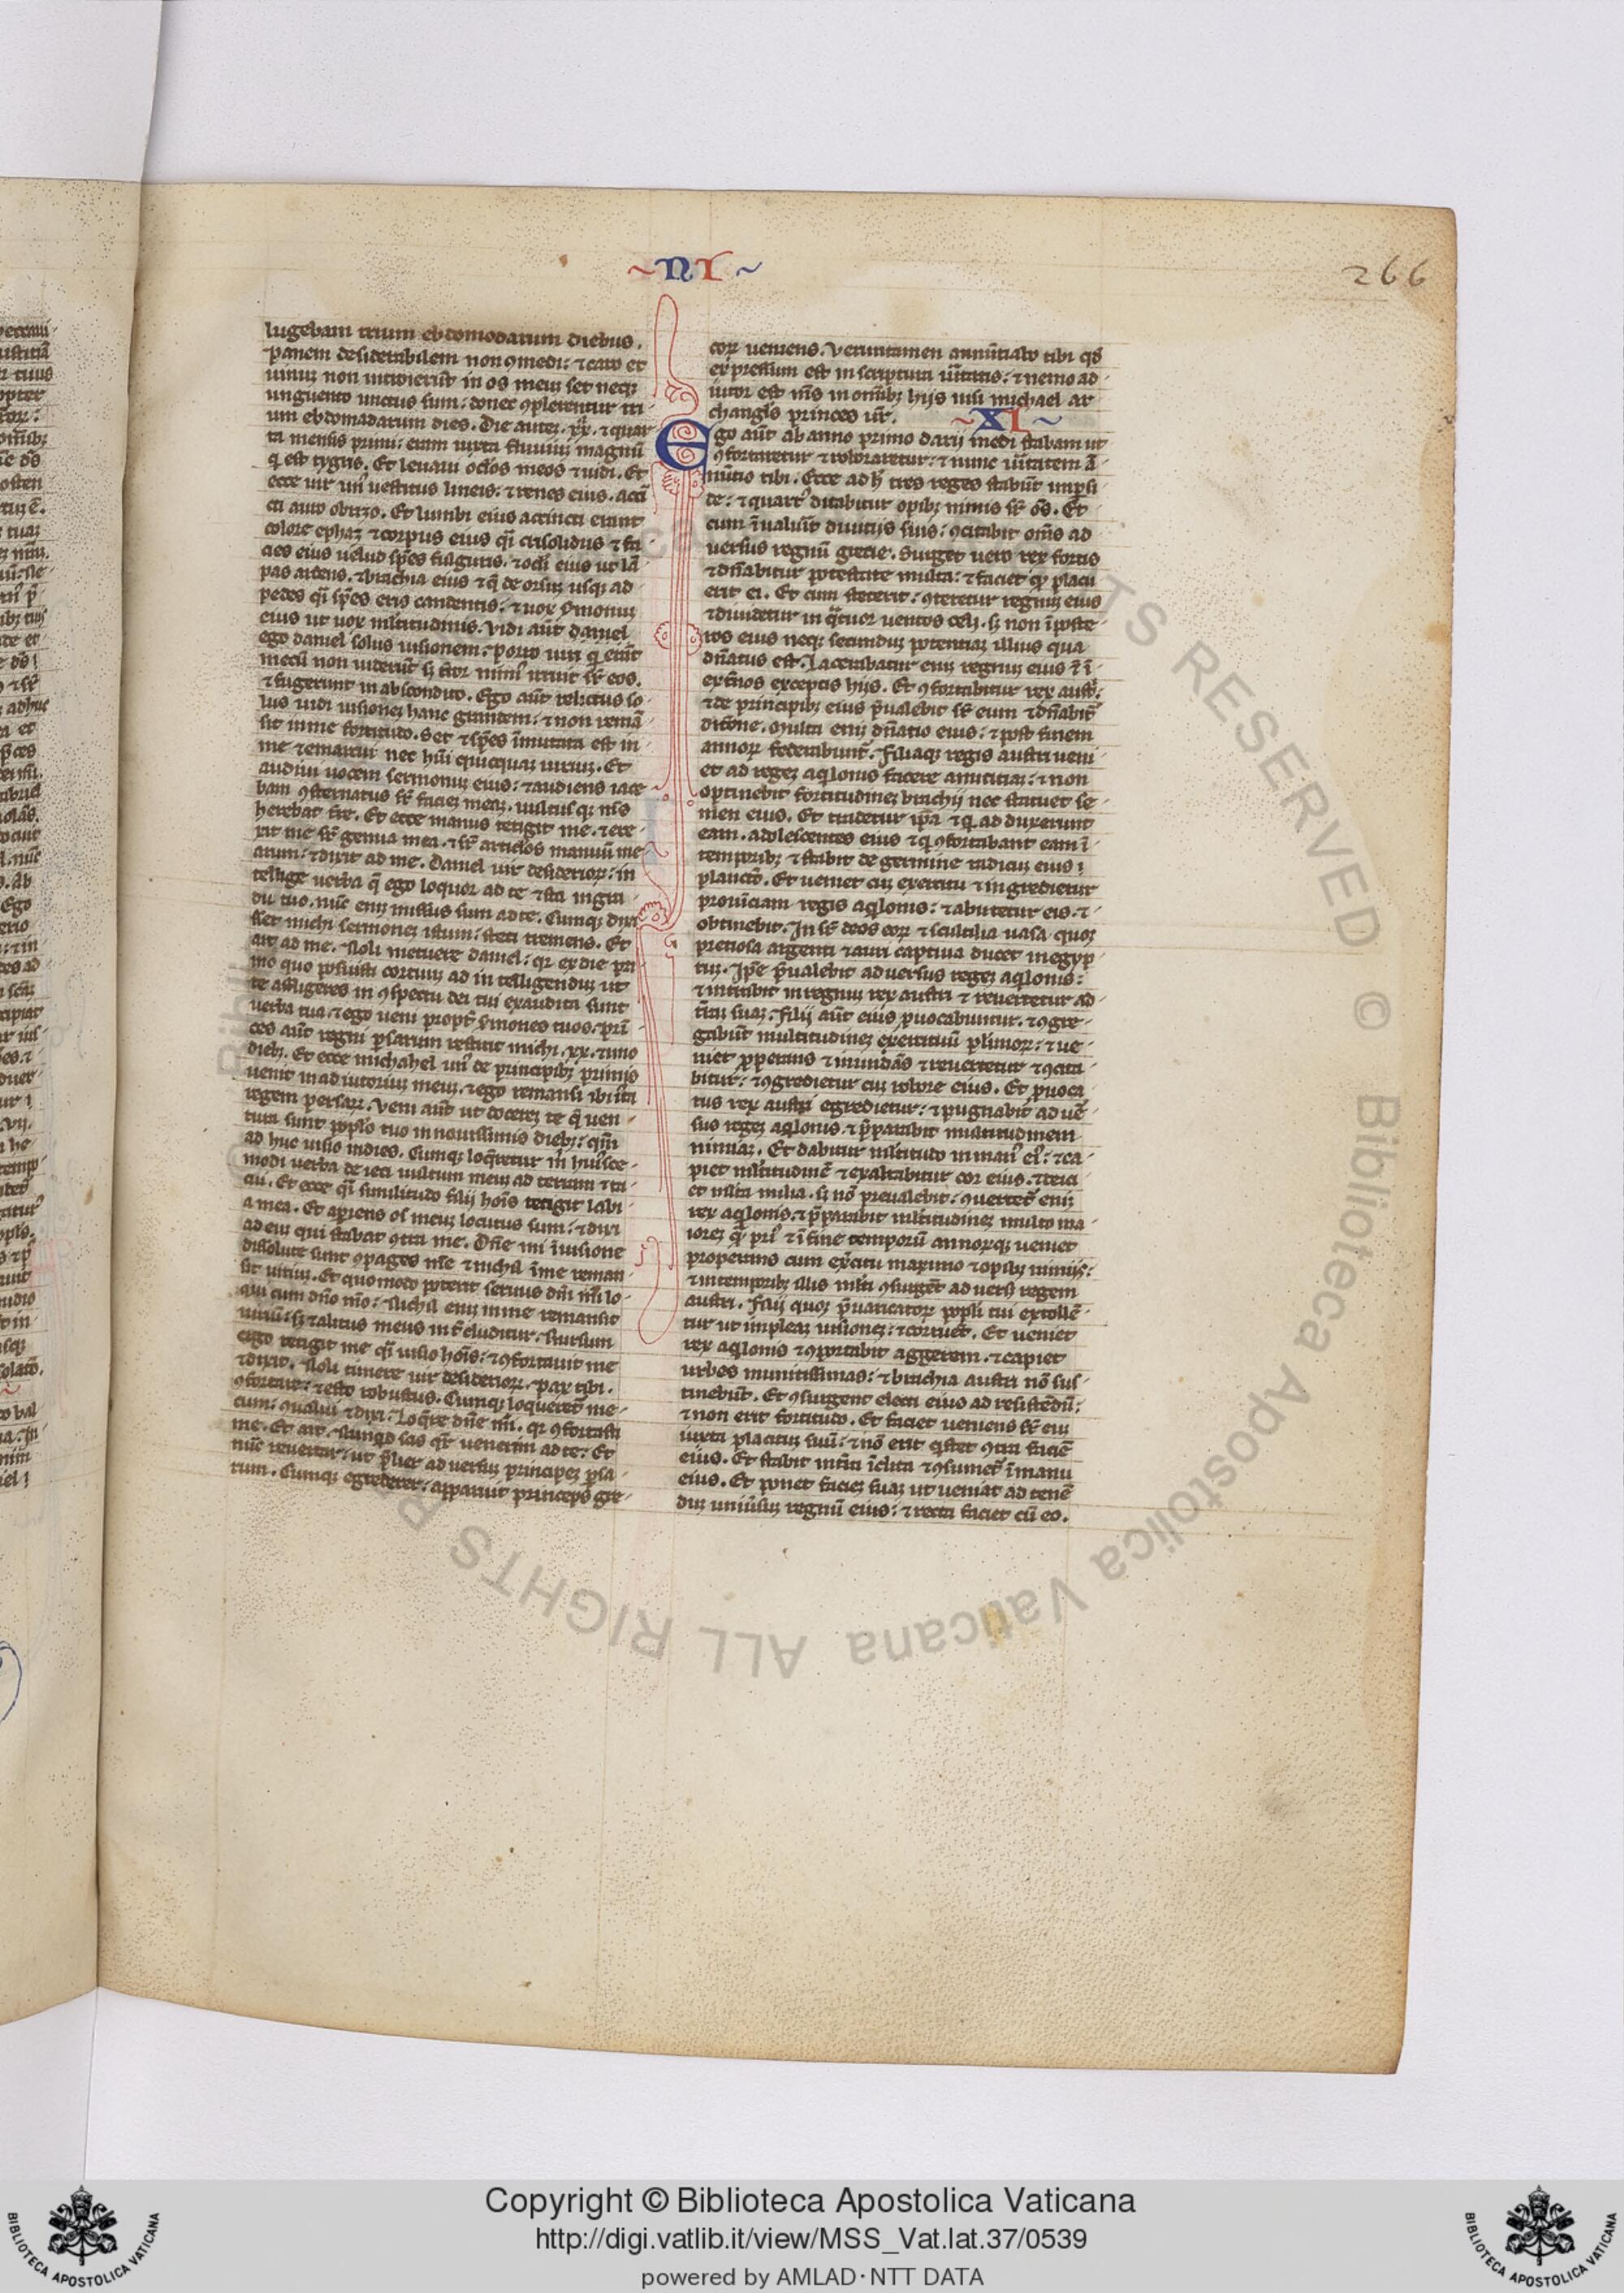 ~ NI ~
266
lugebam trium ebdomodarum diebus.
panem desiderabilem non ꝯmedi: ⁊ caro et
uinuꝫ non introierūt in os meuꝫ set neqꝫ
unguento unctus sum: donec ꝯplerentur tri-
um ebdomadarum dies. Die auteꝫ. xx. ⁊ quar-
ta mensis primi: eram iuxta fluuiuꝫ magnū
q̇ est tygris. Et leuaui oclos meos ⁊ uidi. Et
ecce uir un uestitus lineis: ⁊ renes eius. acci
cti auro obrizo. Et lumbi eius accincti erant
colore ephaz ⁊ corpus eius q̄i crisolidus ⁊ fa
cies eius uelud sp̄es fulguris. ⁊ ocli eius ut lā-
pas ardens. ⁊ brachia eius ⁊ q̄ deorsuꝫ usqꝫ ad
pedes q̄i sp̄es eris candentis: ⁊ uox s̄monuꝫ
eius ut uox multitudinis. Vidi aūt daniel
ego daniel solus uisionem: porro uiri q̇ erāt
mecū non uiderūt sꝫ t̄ror nimiꝰ irruit sr̄ eos.
⁊ fugerunt in absconduto. Ego aūt relictus so-
lus uidi uisioneꝫ hanc grandem: ⁊ non reman-
sit in me fortitudo. Set ⁊ sp̄es īmutata est in
me ⁊ emarcui nec hūi quicquaꝫ uiriuꝫ. Et
audiui uocem sermonuꝫ eius: ⁊ audiens iace-
bam ꝯsternatus sr̄ facieꝫ meaꝫ. uultusqꝫ mꝰ
herebat tre. Et ecce manus tetigit me. ⁊ ere-
xit me sr̄ genua mea. ⁊ sr̄ articlos manuū me-
arum: ⁊ dixit ad me. Daniel uir desiderioꝝ: in
tellige uerba q̄ ego loquor ad te ⁊ sta in gra-
du tuo. nūc eniꝫ missus sum ad te. Cumqꝫ dixi
sset michi sermoneꝫ istum: steti tremens. Et
ait ad me. Noli metuere daniel: qꝛ ex die pri
mo quo posuisti cor tuuꝫ ad intelligenduꝫ ut
te affligeres in ꝯspectu dei tui exaudita sunt
uerba tua. ⁊ ego ueni propt̄ s̄mones tuos. pri-
ces aūt regni ꝑsarum restitit michi. xx. ⁊ uno
dieb. Et ecce michahel unꝰ de principibꝫ primis
uenit in adiutoriuꝫ meuꝫ. ⁊ ego remansi ibi iuxta
regem persarꝝ. Veni aūt ut docereꝫ te q̄ uen-
tura sunt pplo tuo in nouissimis diebꝫ: qm̄
ad huc uisio in dies. Cumqꝫ loq̄retur m̄ huiusce-
modi uerba deieci uultum meuꝫ ad terram ⁊ ta-
cui. Et ecce q̄i similitudo filij hoīs tetigit labi-
a mea. Et aperiens os meuꝫ locutus sum: ⁊ dixi
ad eū qui stabat ꝯtra me. Dn̄e mi ī uisione
dissolute sunt ꝯpages mee ⁊ nichil ī me reman-
sit uiriū. Et quomodo poterit seruus dn̄i mī lo-
qui cum dn̄o mo: Nichil eniꝫ in me remansit
uiriū: sꝫ ⁊ alitus meus int̄cluditur. Rursum
ergo tetigit me q̄i uisio hoīs: ⁊ ꝯfortauit me
⁊ dixit. Noli timere uir desiderioꝝ. pax tibi.
ꝯfortare: ⁊ esto robustus. Cumqꝫ loqueret̄ me-
cum: ꝯualui ⁊ dixi: Loq̄re dn̄e mi. qꝛ ꝯfortasti
me. Et ait. Nunqd scis q̄r uenerim ad te: Et
nūc reuertar: ut p̄lier aduersuꝫ principeꝫ ꝑsa-
rum. Cumqꝫ egrederer: apparuit princeps gre-
coꝝ ueniens. Veruntamen annūtiabo tibi qd
expressum est in scriptura ūitatis: ⁊ nemo ad-
iutor est mꝰ in omībꝫ hijs nisi michael ar
changls princes ur̄.
~ XI ~
Ego aūt ab anno primo darij medi stabam ut
ꝯfortaretur ⁊ roboraretur: ⁊ nunc ūitatem ā-
nūtio tibi. Ecce ad h tres reges stabūt in ꝑsi-
de: ⁊ quartꝰ ditabitur opibꝫ nimis sr̄ oꝰ. Et
cum īualuit̄ diuitijs suis: ꝯcitabit omꝰ ad
uersus regnū grecie. Surget uero rex fortis
⁊ dn̄abitur potestate multa: ⁊ faciet qꝫ placu
erit ei. Et cum steterit: ꝯteretur regnuꝫ eius
⁊ diuidetur in q̄tuor uentos celi. sꝫ non ī poste-
ros eius neqꝫ secunduꝫ potentiaꝫ illius qua
dn̄atus est. Lacerabitur eniꝫ regnuꝫ eius ⁊ ī-
ext̄nos exceptis hijs. Et ꝯfortabitur rex austrꝰ:
⁊ de principibꝫ eius p̄ualebit sr̄ eum ⁊ dn̄abit̄
ditione. multa eniꝫ dn̄atio eius: ⁊ post finem
annoꝝ federabunt̄. Filiaqꝫ regis austri ueni
et ad regeꝫ aq̇lonis facere amicitiaꝫ: ⁊ non
optinebit fortitudineꝫ brachij nec stabit se-
men eius. Et tradetur ip̄a ⁊ q̇ adduxerunt
eam. adolescentes eius ⁊ q̇ ꝯfortabant eam ī
temporibꝫ ⁊ stabit de germine radicuꝫ eius:
plantatō. Et ueniet cuꝫ exercitu ⁊ ingredietur
prouinciam regis aq̇lonis: ⁊ abutetur eis: ⁊-
obtinebit. In sr̄ deos eoꝝ ⁊ sculptilia uasa quoqꝫ
pretiosa argenti ⁊ auri captiua ducet in egyp-
tuꝫ. Ip̄e p̄ualebit aduersus regeꝫ aq̇lonis:
⁊ intrabit in regnuꝫ rex austri ⁊ reuertetur ad-
t̄raꝫ suaꝫ. Filij aūt eius ꝓuocabuntur. ⁊ ꝯgre-
gabūt multitudineꝫ exercituū plimoꝝ: ⁊ ue-
niet ꝓperans ⁊ inundās ⁊ reuertetur ⁊ ꝯcita-
bitur: ⁊ ꝯgredietur cuꝫ robore eius. Et ꝓuoca
tus rex austri egredietur: ⁊ pugnabit aduē-
sus regeꝫ aq̇lonis. ⁊ p̄parabit multitudinem
nimiaꝫ. Et dabitur mltitudo in manꝰ eiꝰ: ⁊ ca-
piet mltitudinē ⁊ exaltabitur cor eius. ⁊ deici
et mlta milia. sꝫ nō preualebit: ꝯuertet̄ eniꝫ
rex aq̇lonis. ⁊ p̄parabit mltitudineꝫ multo ma-
ioreꝫ q̄ priꝰ ⁊ ī fine temporū annoꝝqꝫ ueniet
properans cum exc̄itu magno ⁊ opibꝫ nimijs:
⁊ in temporibꝫ illis mlti ꝯsurget̄ aduersꝰ regem
austri. Filij quoqꝫ p̄uaricatoꝝ ppli tui extollē-
tur ut impleaꝫ uisioneꝫ: ⁊ corruet̄. Et ueniet
rex aq̇lonis ⁊ ꝯportabit aggerem. ⁊ capiet
urbes munitissimas: ⁊ brachia austri nō sus-
tinebūt. Et ꝯsurgent electi eius ad resistēdū:
⁊ non erit fortitudo. Et faciet ueniens sr̄ euꝫ
iuxta placituꝫ suū: ⁊ nō erit q̇ stet ꝯtra faciē
eius. Et stabit in t̄ra īclita ⁊ ꝯsumet̄ ī manu
eius. Et ponet facieꝫ suaꝫ ut ueniat ad tenē-
duꝫ uniūsuꝫ regnū eius: ⁊ recta faciet cū eo.
ALL RIGHTS RESERVED © Biblioteca Apostolica Vaticana
Copyright © Biblioteca Apostolica Vaticana
http://digi.vatlib.it/view/MSS_Vat.lat.37/0539
powered by AMLAD·NTT DATA
BIBLIOTECA APOSTOLICA VATICANA
BIBLIOTECA APOSTOLICA VATICANA